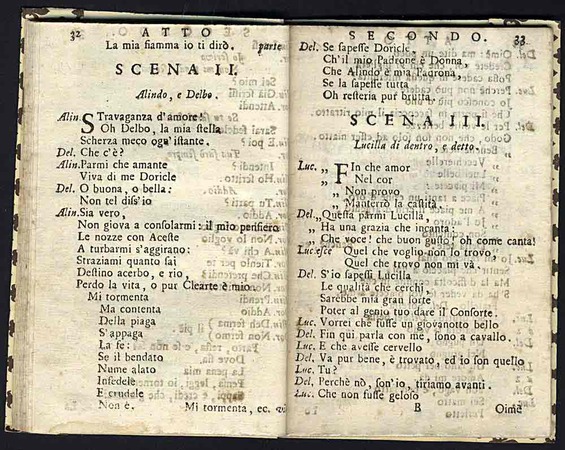 32 ATTO
La mia fiamma io ti dirò. parte
SCENA II.
Alindo, e Delbo.
Alin. STravaganza d'amore!
Oh Delbo, la mia ſtella
Scherza meco ogn'iſtante.
Del. Che c'è?
Alin. Parmi che amante
Viva di me Doricle
Del. O buona, o bella:
Non tel diſs'io
Alin. Sia vero,
Non giova a conſolarmi: il mio penſiero
Le nozze con Aceſte
A turbarmi s'aggirano:
Straziami quanto ſai
Deſtino acerbo, e rio,
Perdo la vita, o pur Clearte è mio.
Mi tormenta
Ma contenta
Della piaga
S'appaga
La fe:
Se il bendato
Nume alato
Infedele
E crudele
Non è. Mi tormenta, ec.
SECONDO. 33
Del. Se ſapeſſe Doricle
Ch'il mio Padrone è Donna,
Che Alindo è mia Padrona,
Se la ſapeſſe tutta
Oh reſteria pur brutta.
SCENA III.
Lucilla di dentro, e detto.
Luc. „ FIn che amor
„ Nel cor
„ Non provo
„ Manterrò la caſtità.
Del. „ Queſta parmi Lucilla,
„ Ha una grazia che incanta;
„ Che voce! che buon guſto! oh come canta!
Luc. eſce Quel che voglio non lo trovo,
Quel che trovo non mi và.
Del. S'io ſapeſſi Lucilla
Le qualità che cerchi,
Sarebbe mia gran ſorte
Poter al genio tuo dare il Conſorte.
Luc. Vorrei che fuſſe un giovanotto bello
Del. Fin quì parla con me, ſono a cavallo.
Luc. E che aveſſe cervello
Del. Va pur bene, è trovato, ed io ſon quello
Luc. Tu?
Del. Perchè nò, ſon'io, tiriamo avanti.
Luc. Che non fuſſe geloſo
B Oimè